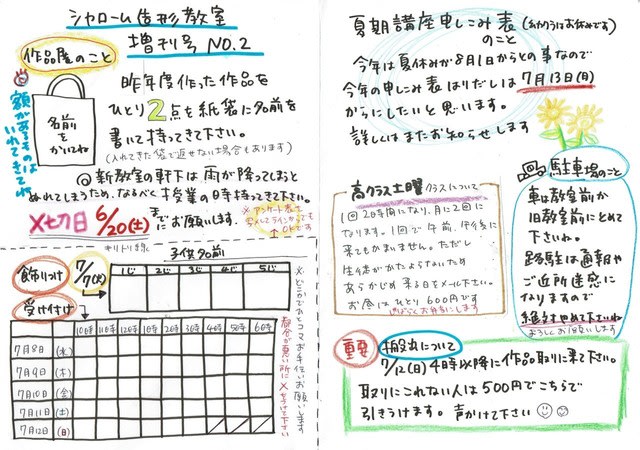 シャローム造形教室
増刊号 NO.2
作品展のこと
額があるものは
いれてきてね
名前
を
かいてね
昨年度作った作品を
ひとり2点を紙袋に名前を
書いて持ってきて下さい。
(入れてきた袋で返せない場合もあります)
◎新教室の軒下は雨が降ってしまうと
ぬれてしまうため、なるべく授業の日時持ってきて下さい。
〆切日 6/20(土)までにお願いします。
※アンケート表は
OKです
キリトリません
子供名前
飾りつけ 7/7(火)
1じ 2じ 3じ 4じ 5じ
受け付け
10時 11時 12時 1時 2時 3時 4時 5時 6時
7月8日(水)
7月9日(木)
7月10日(金)
7月11日(土)
7月12日(日)
※どこかでひとコマお手伝いお願いします
都合が悪い所に×を付けて下さい
夏期講座申しこみ表(おわりはお休みです)
のこと
今年は夏休みが8月1日からとの事なので
今年の申しこみ表はりだしは7月13日(月)
からにしたいと思います。
詳しくはまたお知らせします
高クラス土曜クラスについて
1回2時間になり、月に2回に
なります。1回で午前、午後に
来てもかまいません。ただし
生徒がかたよらないため
あらかじめ来る日をメール下さい。
お食はひとり600円です
しばらくお弁当にします
駐車場のこと
車は教室前か
旧教室前にとめて
下さいね。
路駐は通報や
ご近所迷惑に
なりますので
絶対やめて下さいね
よろしくお願いします
重要
搬出について
7/12(日)4時以降に作品取りに来て下さい。
取りにこれない人は500円でこちらで
引きうけます。声かけて下さい